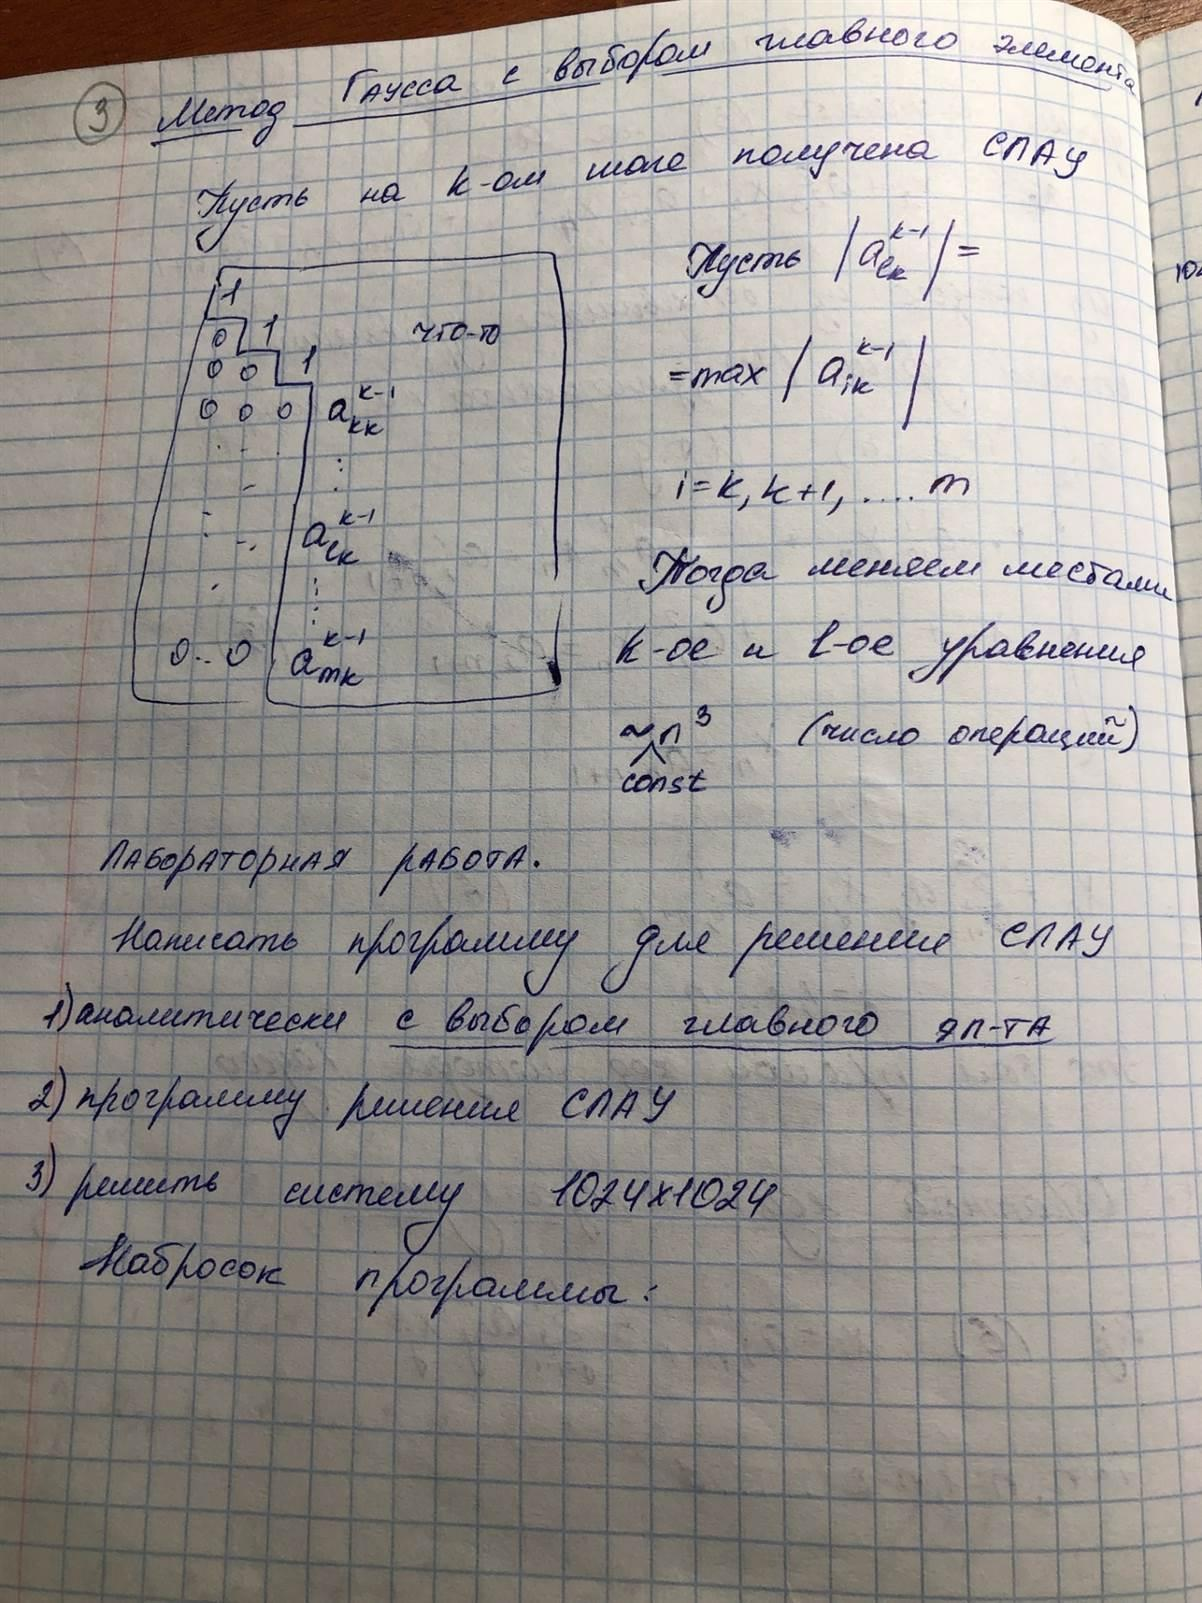 3 Метод Гаусса с выбором главного элемента
Пусть на k-ом шаге получена СЛАУ
1
0 1 что-то
0 0 1
0 0 0 a_{kk}^{k-1}
a_{lk}^{k-1}
0..0 a_{mk}^{k-1}
Пусть |a_{lk}^{k-1}| =
= max |a_{ik}^{k-1}|
i = k, k+1, .... m
Тогда меняем местами
k-ое и l-ое уравнения
~ n³ (число операций)
const
Лабораторная работа.
Написать программу для решения СЛАУ
1) аналитически с выбором главного эл-та
2) программу решения СЛАУ
3) решить систему 1024x1024
Набросок программы: